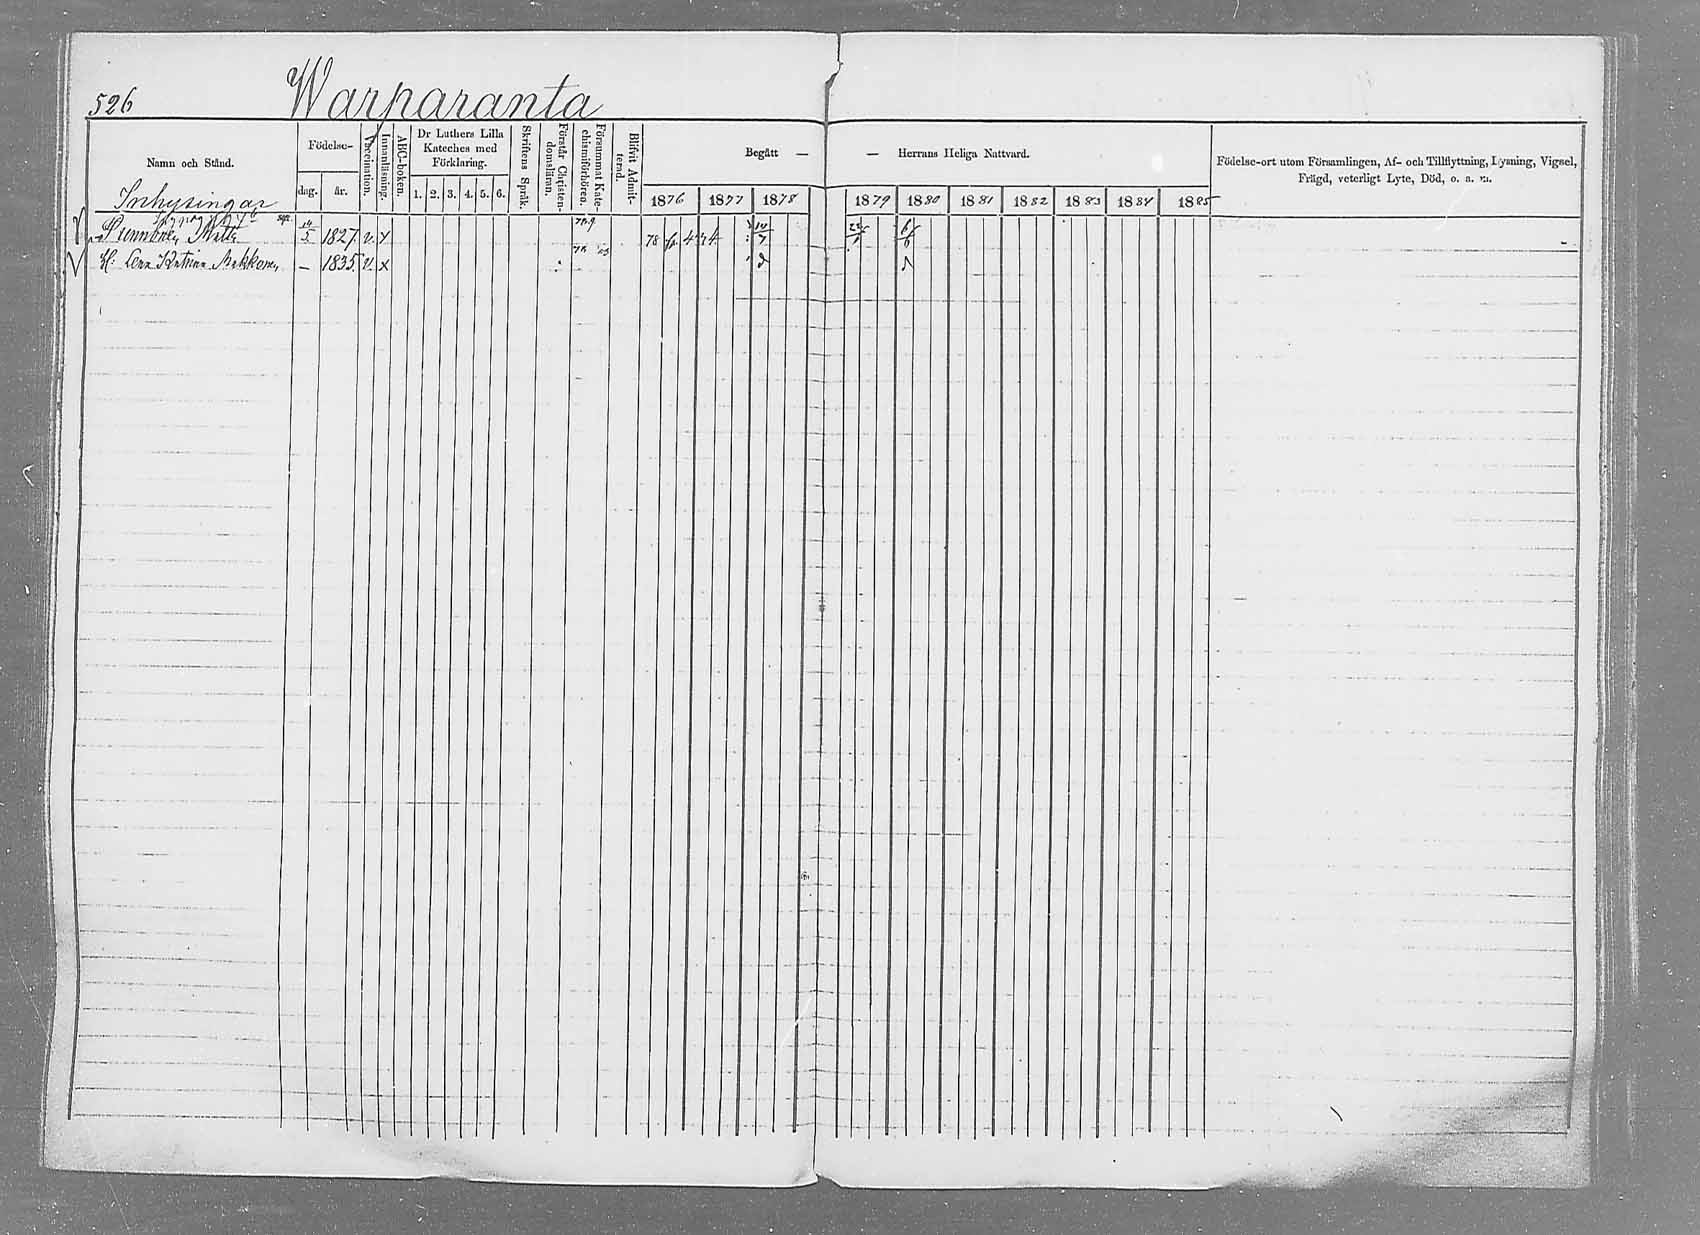 526 Warparanta
Namn och Stånd.
Födelse-
dag. år.
Vaccination.
Innanläsning.
ABC-boken.
Dr Luthers Lilla
Kateches med
Förklaring.
1. 2. 3. 4. 5. 6.
Skriftens Språk.
Förstår Christen-
domsläran.
Försummat Kate-
chismiförhören.
Blifvit Admit-
terad.
Begått — — Herrans Heliga Nattvard.
1876 1877 1878 1879 1880 1881 1882 1883 1884 1885
Födelse-ort utom Församlingen, Af- och Tillflyttning, Lysning, Vigsel,
Frägd, veterligt Lyte, Död, o. a. m.
Inhysingar
Matts 14/5 1827 v. x
H: Katrina – 1835 v. x